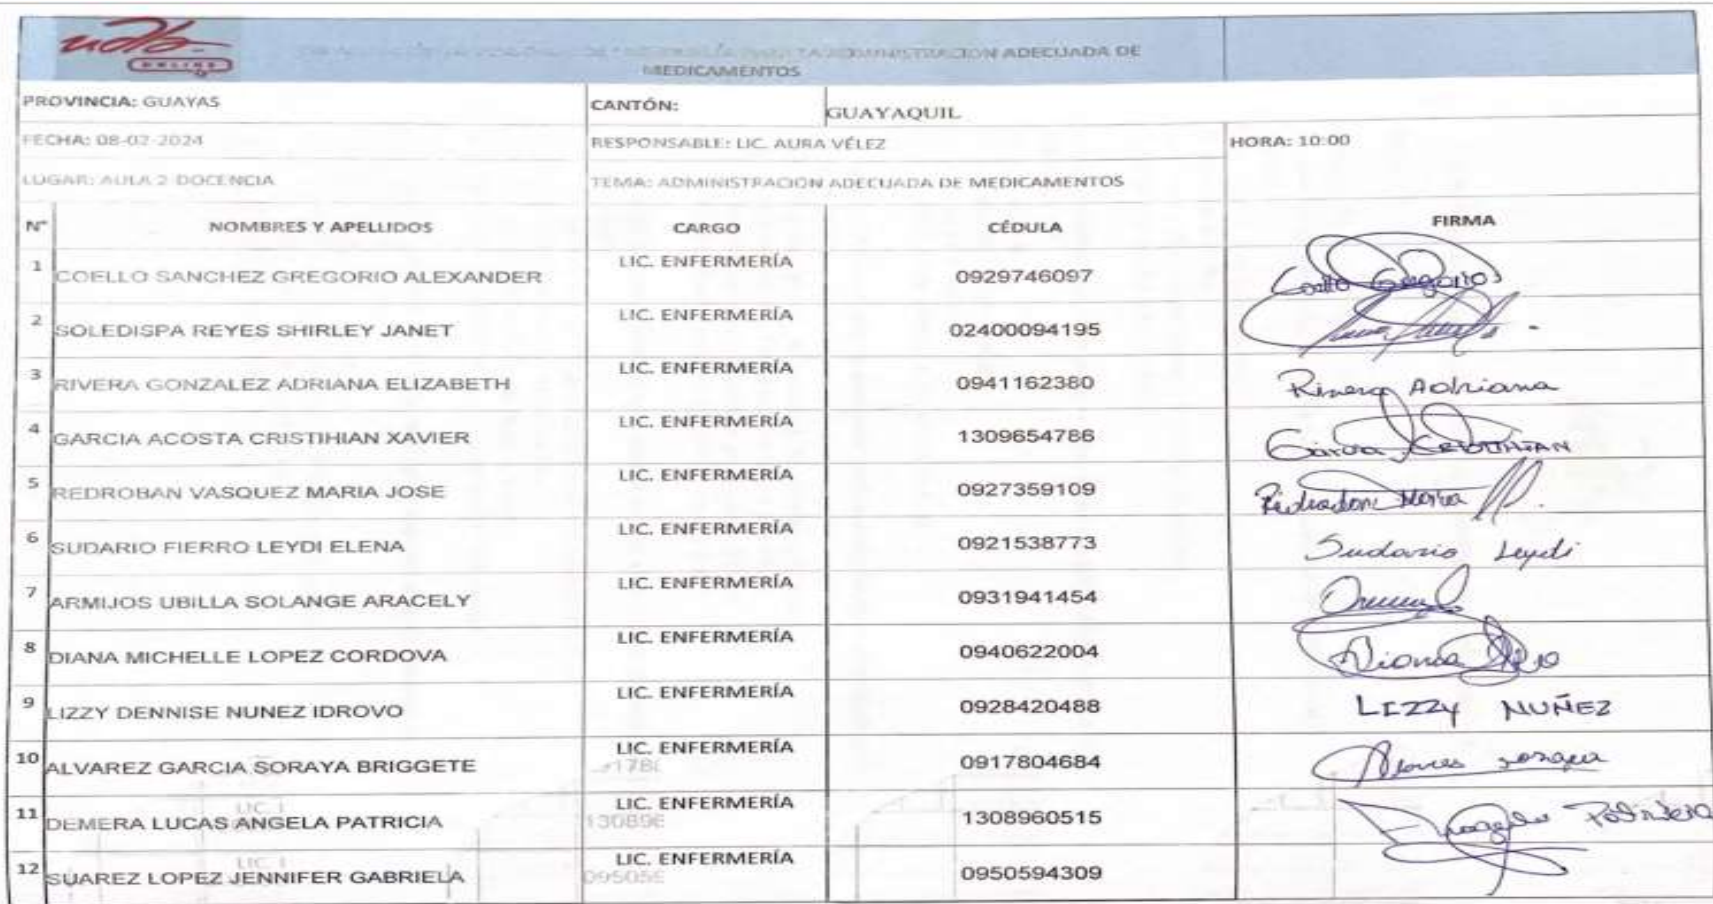 udb-
ONLINE
ADMINISTRACION ADECUADA DE
MEDICAMENTOS
PROVINCIA: GUAYAS CANTÓN: GUAYAQUIL
FECHA: 08-02-2024 RESPONSABLE: LIC. AURA VÉLEZ HORA: 10:00
LUGAR: AULA 2 DOCENCIA TEMA: ADMINISTRACION ADECUADA DE MEDICAMENTOS
N° NOMBRES Y APELLIDOS CARGO CÉDULA FIRMA
1 COELLO SANCHEZ GREGORIO ALEXANDER LIC. ENFERMERÍA 0929746097 Coello Gregorio
2 SOLEDISPA REYES SHIRLEY JANET LIC. ENFERMERÍA 02400094195
3 RIVERA GONZALEZ ADRIANA ELIZABETH LIC. ENFERMERÍA 0941162380 Rivera Adriana
4 GARCIA ACOSTA CRISTIHIAN XAVIER LIC. ENFERMERÍA 1309654786 Garcia
5 REDROBAN VASQUEZ MARIA JOSE LIC. ENFERMERÍA 0927359109 Maria
6 SUDARIO FIERRO LEYDI ELENA LIC. ENFERMERÍA 0921538773 Sudario Leydi
7 ARMIJOS UBILLA SOLANGE ARACELY LIC. ENFERMERÍA 0931941454
8 DIANA MICHELLE LOPEZ CORDOVA LIC. ENFERMERÍA 0940622004 Diana
9 LIZZY DENNISE NUNEZ IDROVO LIC. ENFERMERÍA 0928420488 LIZZY NUÑEZ
10 ALVAREZ GARCIA SORAYA BRIGGETE LIC. ENFERMERÍA 0917804684
11 DEMERA LUCAS ANGELA PATRICIA LIC. ENFERMERÍA 1308960515
12 SUAREZ LOPEZ JENNIFER GABRIELA LIC. ENFERMERÍA 0950594309